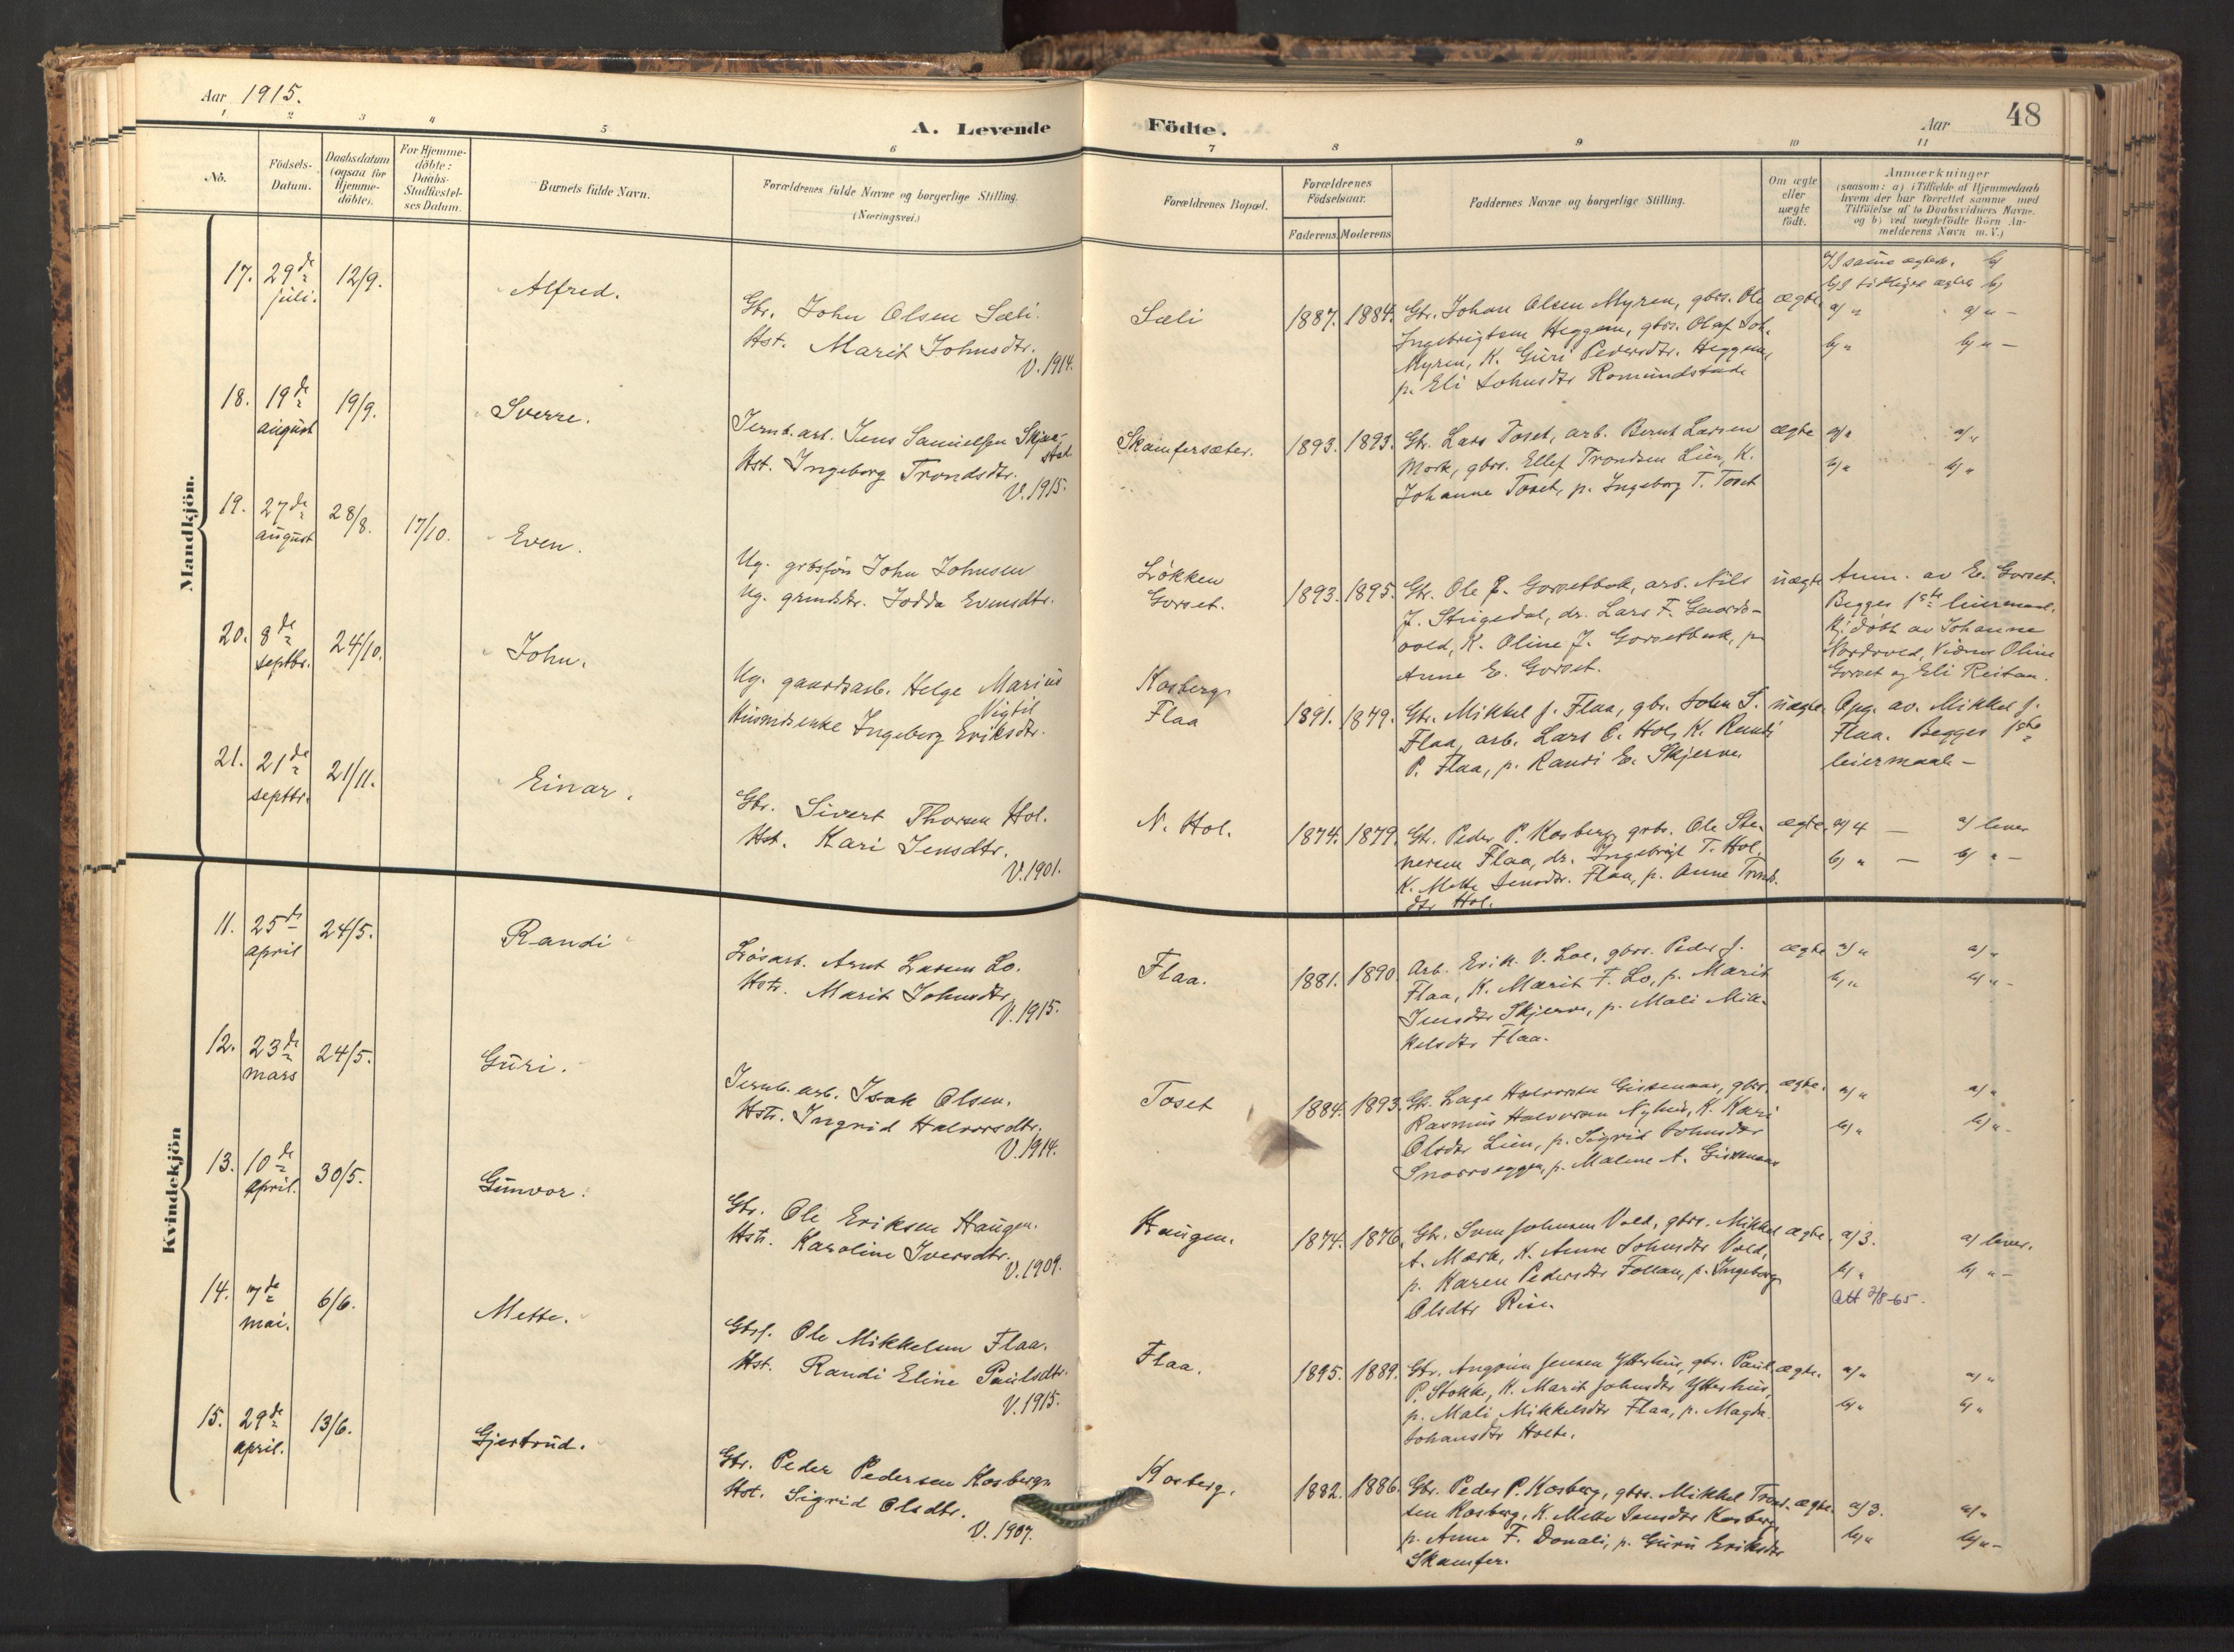 Aar 1915.
A. Levende
Födte.
Aar
48
1
2
3
4
5
6
7
8
9
10
11
No.
Födsels-
Datum.
Daabsdatum
(ogsaa for
Hjemme-
döbte).
For Hjemme-
döbte:
Daabs-
Stadfæstel-
ses Datum.
Barnets fulde Navn.
Forældrenes fulde Navne og borgerlige Stilling.
(Næringsvei.)
Forældrenes Bopæl.
Forældrenes
Födselsaar.
Faderens.
Moderens.
Faddernes Navne og borgerlige Stilling.
Om ægte
eller
uægte
födt.
Anmærkninger
(saasom: a) i Tilfælde af Hjemmedaab
hvem der har forrettet samme med
Tilföielse af to Daabsvidners Navne.
og b) ved uægtefödte Börn An-
melderens Navn m. V.)
Mandkjön.
17. 29de
juli.
12/9.
Alfred.
Gbr. John Olsen Sæli.
Hst. Marit Johnsdtr.
V. 1914.
Sæli
1887. 1884.
Gbr. Johan Olsen Myren, gbrs. Ole
Ingebrigtsen Heggem, gbrs. Olaf Joh.
Myren, K. Guri Pedersdtr. Heggem,
p. Eli Johnsdtr Romundstade
ægte
18. 19de
august
19/9.
Sverre.
Jernb. arb. Jens Samuelsen
Hst. Ingeborg Trondsdtr.
V. 1915.
Skamfersæter.
1893. 1893.
Gbr. Lars Toset, arb. Bernt Larsen
Mork, gbrs. Ellef Trondsen Lien, K.
Johanne Toset, p. Ingeborg T. Toset
ægte
19. 27de
august
28/8.
17/10.
Even.
Ug. grbsøn John Johnsen
Ug. grmdtr. Jodda Evensdtr.
Løkken
Gorset.
1893. 1895.
Gbr. Ole J. Gorsetbak, arb. Nils
J. Stigedal, dr. Lars F. Gaards-
vold, K. Oline J. Gorsetbak, p.
Anne E. Gorset.
uægte
Anm. av E. Gorset.
Begges 1ste leiermaal.
Hj. døbt av Johanne
Nordvold, Vidner Oline
Gorset og Eli Reitan.
20. 8de
septbr.
24/10.
John.
Ug. gaardsarb. Helge Marius
Vigtil
Husmdsenke Ingeborg Eriksdtr.
Kosberg.
Flaa
1891. 1879.
Gbr. Mikkel J. Flaa, gbr. John S.
Flaa, arb. Lars O. Hol, K. Randi
P. Flaa, p. Randi E. Skjerve.
uægte.
Opg. av Mikkel J.
Flaa. Begges 1ste
leiermaal -
21. 21de
septbr.
21/11.
Einar.
Gbr. Sivert Thorsen Hol.
Hst. Kari Jensdtr.
V. 1901.
N. Hol.
1874. 1879.
Gbr. Peder P. Kosberg, grbr. Ole Ste-
nersen Flaa, dr. Ingebrigt T. Hol,
K. Mette Jensdtr. Flaa, p. Anne Trond-
dtr Hol.
ægte.
a/ 4 — a/ lever
b/ " — b/ " -
Kvindekjön
11. 25de
april
24/5.
Randi
Løsarb. Arnt Larsen Lo.
Hstr. Marit Johnsdtr.
V. 1915.
Flaa.
1881. 1890.
Arb. Erik V. Loe, gbrs. Peder J.
Flaa, K. Marit T. Lo, p. Marit
Jensdtr Skjerve, p. Mali Mik-
kelsdtr Flaa.
ægte
a/ " a/ "
b/ " b/ " -
12. 23de
mars
24/5.
Guri.
Jernb. arb. Isak Olsen.
Hstr. Ingrid Halvorsdtr.
V. 1914.
Toset
1884. 1893.
Gbr. Lage Halvorsen Gissenaas, gbr.
Rasmus Halvorsen Nyhus, K. Kari
Olsdtr Lien, p. Sigrid Johnsdtr
p. Malene A. Gissenaas
ægte.
a/ " a/ "
b/ " b/ " -
13. 10de
april.
30/5.
Gunvor.
Gbr. Ole Eriksen Haugen.
Hstr. Karoline Iversdtr.
V. 1909.
Haugen.
1874. 1876.
Gbr. Sven Johnsen Vold, gbrs. Mikkel
A. Mork, K. Anne Johnsdtr Vold,
p. Karen Pedersdtr Follan, p. Ingeborg
Olsdtr Rise.
ægte.
a/ 3. a/ lever.
b/ " b/ " -
Att 2/8-65.
14. 7de
mai.
6/6.
Mette.
Gbrs. Ole Mikkelsen Flaa.
Hst. Randi Eline Paulsdtr.
V. 1915.
Flaa.
1895. 1889.
Gbr. Angrim Jensen Ytterhus, gbr. Paul
P. Stokke, K. Marit Johnsdtr Ytterhus,
p. Mali Mikkelsdtr Flaa, p. Magda
Johansdtr Holte.
ægte.
a/ " a/ "
b/ " b/ "
15. 29de
april.
13/6.
Gjertrud.
Gbr. Peder Pedersen Kosberg.
Hst. Sigrid Olsdtr.
V. 1907.
Kosberg.
1882. 1886.
Gbr. Peder P. Kosberg, gbrs. Mikkel Trond-
sen Kosberg, K. Mette Jensdtr Kosberg,
p. Anne F. Donali, p. Guru Eriksdtr
Skamfer.
ægte.
a/ 3. a/ "
b/ " b/ " -